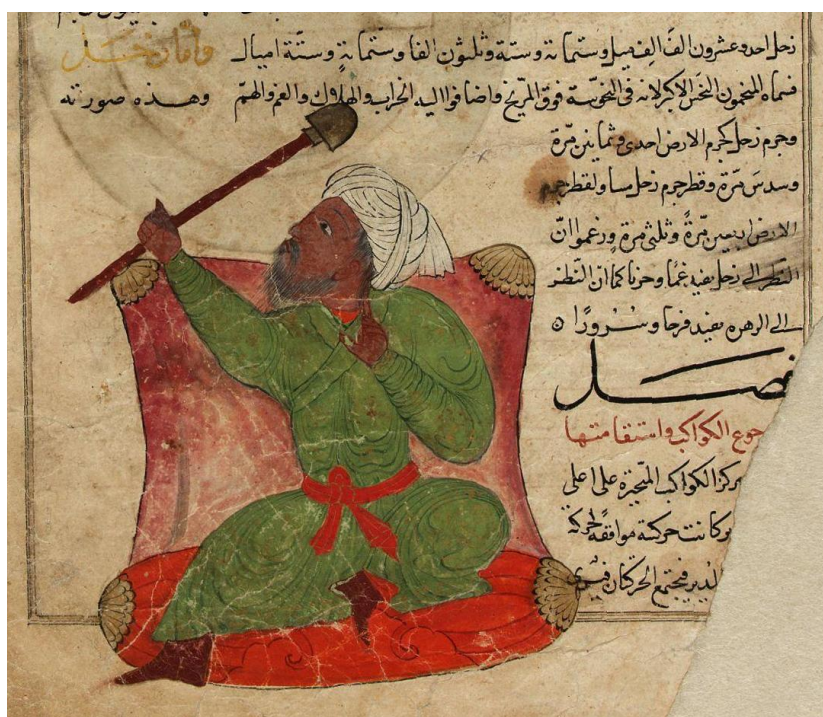 زحل احد وعشرون الف الف ميل وستمائة وستة وثلثون الفا وستمائة وستة اميال واما زحل
فسماه المنجمون النحس الاكبر لانه فى النحوسة فوق المريخ واضافوا اليه الخراب والهلاك والغم والهم وهذه صورته
وجرم زحل كجرم الارض احدى وثمانين مرة
وسدس مرة وقطر جرم زحل مساو لقطر جرم
الارض مرةً وثلثى مرة وزعموا انّ
النظر الى زحل يفيد غمّا وحزنا كما ان النظر
الى الزهره يفيد فرحا وسُرورًا
فصل
جوع الكواكب واستقامتها
مركز الكواكب المتحيزة على اعلى
كانت حركته موافقةً لحركة
فتجتمع الحركتان فيرى